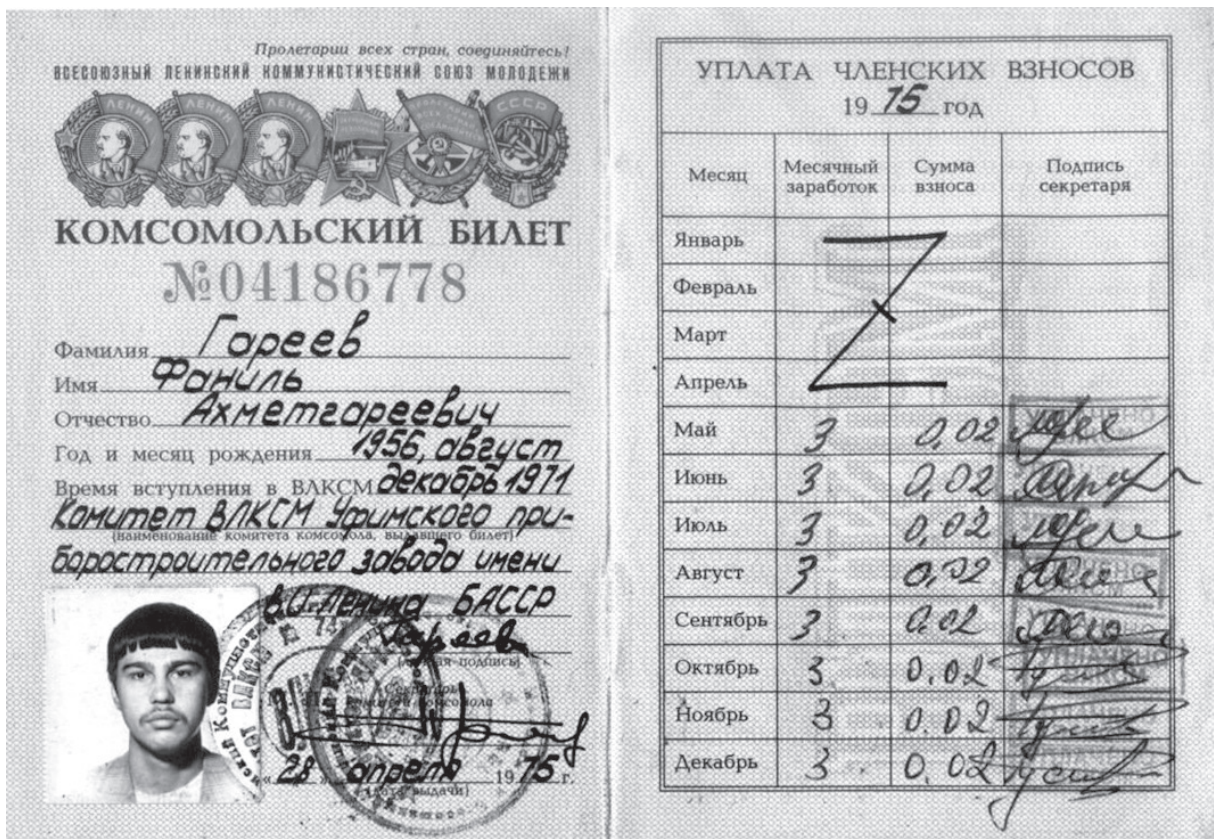 Пролетарии всех стран, соединяйтесь!
ВСЕСОЮЗНЫЙ ЛЕНИНСКИЙ КОММУНИСТИЧЕСКИЙ СОЮЗ МОЛОДЕЖИ
ЛЕНИН ЛЕНИН ЛЕНИН СССР
КОМСОМОЛЬСКИЙ БИЛЕТ
№04186778
Фамилия Гареев
Имя Фаниль
Отчество Ахметгареевич
Год и месяц рождения 1956, август
Время вступления в ВЛКСМ декабрь 1971
Комитет ВЛКСМ Уфимского при-
(наименование комитета комсомола, выдавшего билет)
боростроительного завода имени
В.И.Ленина БАССР
Гареев
(личная подпись)
Секретарь
комитета комсомола
«28» апреля 1975 г.
(дата выдачи)
УПЛАТА ЧЛЕНСКИХ ВЗНОСОВ
1975 год
Месяц Месячный заработок Сумма взноса Подпись секретаря
Январь
Февраль
Март
Апрель
Май 3 0,02
Июнь 3 0,02
Июль 3 0,02
Август 3 0,02
Сентябрь 3 0,02
Октябрь 3 0,02
Ноябрь 3 0,02
Декабрь 3 0,02